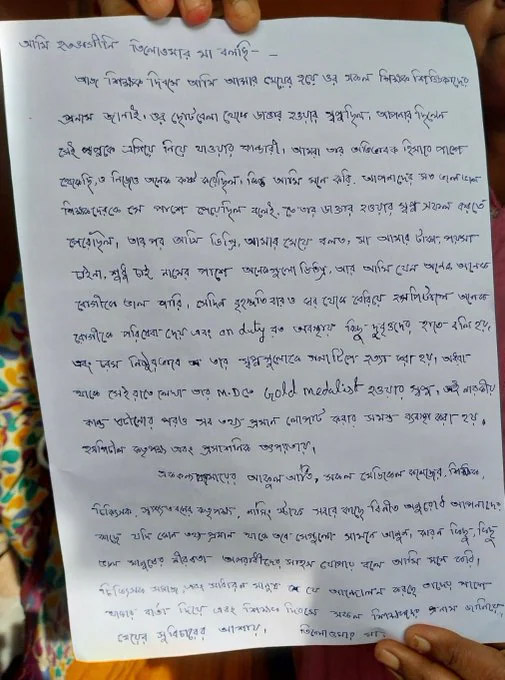 আমি হতভাগীনি তিলোত্তমার মা বলছি- -
আজ শিক্ষক দিবসে আমি আমার মেয়ের হয়ে ওর সকল শিক্ষক শিক্ষিকাদের
প্রনাম জানাই, ওর ছোটবেলা থেকে ডাক্তার হওয়ার স্বপ্নছিল, আপনারা ছিলেন
সেই স্বপ্নকে এগিয়ে নিয়ে যাওয়ার কান্ডারী। আমরা তার অভিভাবক হিসাবে পাশে
থেকেছি, ও নিজেও অনেক কষ্ট করেছিল, কিন্তু আমি মনে করি, আপনাদের মত ভাল ভাল
শিক্ষকদেরকে সে পাশে পেয়েছিল বলেই, ও তার ডাক্তার হওয়ার স্বপ্ন সফল করতে
পেরেছিল, আমার মেয়ে বলত, মা আমার টাকা, পয়সা
চাইনা, শুধু চাই নামের পাশে অনেকগুলো ডিগ্রি, আর আমি যেন অনেক অনেক
রোগীকে ভাল পারি, সেদিন বৃহস্পতিবারও ঘর থেকে বেরিয়ে হসপিটালে অনেক
রোগীকে পরিষেবা দেয় এবং on duty রত অবস্থায় কিছু দুর্বৃত্তদের হাতে বলি হয়,
এবং চরম নিষ্ঠুরভাবে তার স্বপ্নগুলোকে গলা টিপে হত্যা করা হয়,
থাকে সেই রাতে লেখা তার M.D তে Gold medalist হওয়ার স্বপ্ন, এই নারকীয়
কান্ড ঘটানোর পরও সব তথ্য প্রমান লোপাট করার সমস্ত ব্যবস্থা করা হয়,
হসপিটাল কতৃপক্ষ এবং প্রশাসনিক তৎপরতায়,
মায়ের আকুল আর্তি, সকল মেডিকেল কলেজের, শিক্ষক,
চিকিৎসক, স্বাস্থ্যভবনের কতৃপক্ষ, নার্সিং স্টাফ সবার কাছে বিনীত অনুরোধ আপনাদের
কাছে যদি কোন তথ্য প্রমান থাকে তবে সেগুলো সামনে আনুন, কারন কিছু, কিছু
ভাল মানুষের নীরবতা অপরাধীদের সাহস যোগায় বলে আমি মনে করি,
চিকিৎসক সমাজ, এবং সাধারন মানুষ যে আন্দোলন করছে তাদের পাশে
থাকার বার্তা দিয়ে এবং শিক্ষক দিবসে সকল শিক্ষকদের প্রনাম জানিয়ে,
মেয়ের সুবিচারের আশায়, তিলোত্তমার মা।